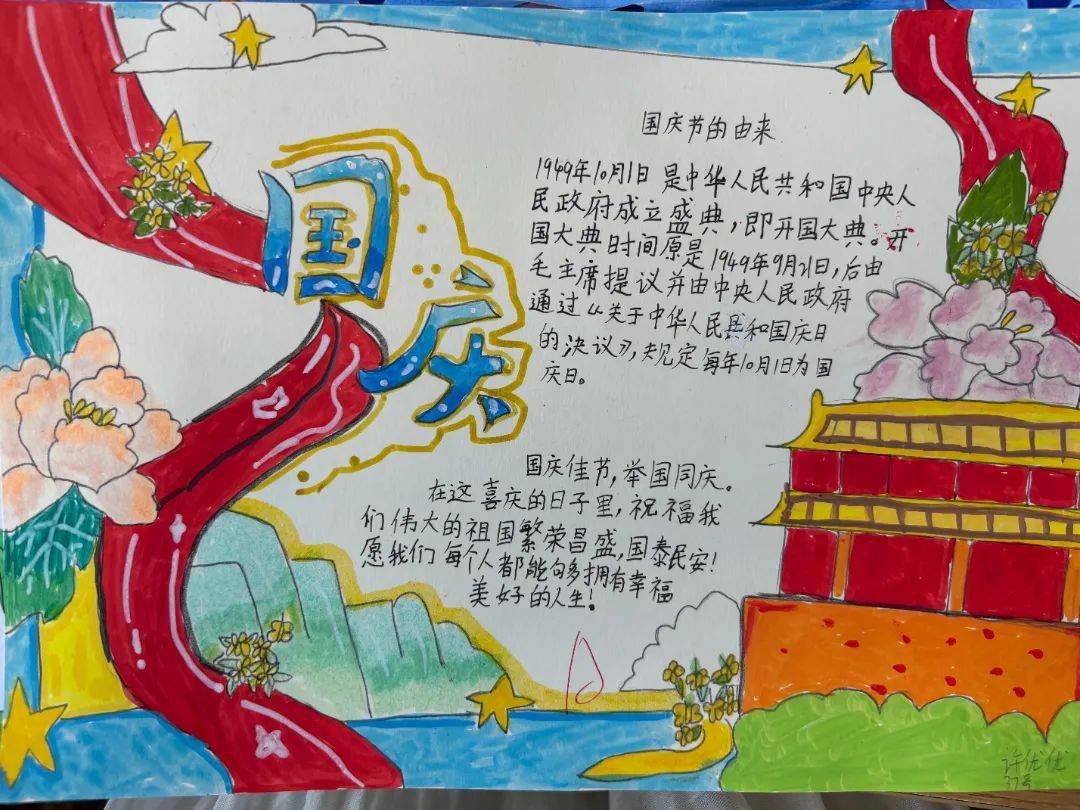 国庆
国庆节的由来
1949年10月1日是中华人民共和国中央人
民政府成立盛典,即开国大典。开
国大典时间原是1949年9月21日,后由
毛主席提议并由中央人民政府
通过《关于中华人民共和国庆日
的决议》,规定每年10月1日为国
庆日。
国庆佳节,举国同庆。
在这喜庆的日子里,祝福我
们伟大的祖国繁荣昌盛,国泰民安!
愿我们每个人都能够多拥有幸福
美好的人生!
许优优
37号